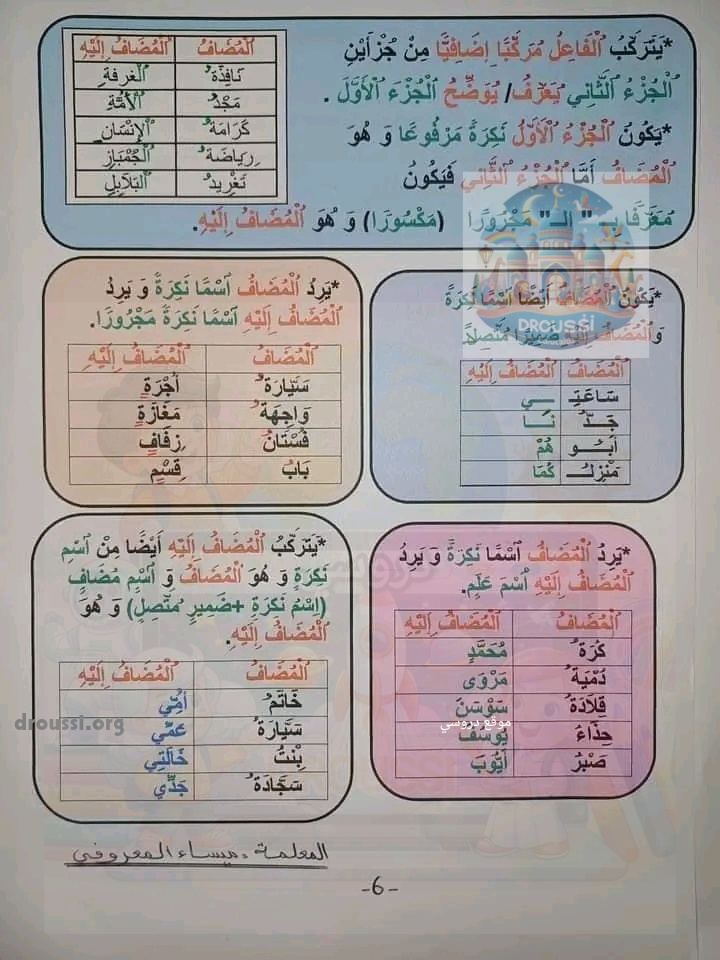 *يَتَرَكَّبُ ٱلْفَاعِلُ مُرَكَّبًا إِضَافِيًّا مِنْ جُزْأَيْنِ
ٱلْجُزْءُ ٱلثَّانِي يُعَرِّفُ/ يُوَضِّحُ ٱلْجُزْءَ ٱلْأَوَّلَ .
*يَكُونُ ٱلْجُزْءُ ٱلْأَوَّلُ نَكِرَةً مَرْفُوعًا وَ هُوَ
ٱلْمُضَافُ أَمَّا ٱلْجُزْءُ ٱلثَّانِي فَيَكُونُ
مُعَرَّفًا بِـ " الـ" مَجْرُورًا (مَكْسُورًا) وَ هُوَ ٱلْمُضَافُ إِلَيْهِ.
ٱلْمُضَافُ ٱلْمُضَافُ إِلَيْهِ
نَافِذَةُ ٱلْغُرفَةِ
مَجْدُ ٱلْأُمَّةِ
كَرَامَةُ ٱلْإِنْسَانِ
رِيَاضَةُ ٱلْجُمْبَازِ
تَغْرِيدُ ٱلْبَلَابِلِ
*يَكُونُ ٱلْمُضَافُ أَيْضًا ٱسْمًا نَكِرَةً
وَٱلْمُضَافُ إِلَيْهِ ضَمِيرًا مُتَّصِلًا
ٱلْمُضَافُ ٱلْمُضَافُ إِلَيْهِ
سَاعَتِـ ـــي
جَدُّ نَا
أَبُــو هُمْ
مَنْزِلُــ كُمَا
DROUSSI
*يَرِدُ ٱلْمُضَافُ ٱسْمًا نَكِرَةً وَ يَرِدُ
ٱلْمُضَافُ إِلَيْهِ ٱسْمًا نَكِرَةً مَجْرُورًا.
ٱلْمُضَافُ ٱلْمُضَافُ إِلَيْهِ
سَيَّارَةُ أُجْرَةٍ
وَاجِهَةُ مَغَازَةٍ
فُسْتَانُ زِفَافٍ
بَابُ قِسْمٍ
*يَرِدُ ٱلْمُضَافُ ٱسْمًا نَكِرَةً وَ يَرِدُ
ٱلْمُضَافُ إِلَيْهِ ٱسْمَ عَلَمٍ.
ٱلْمُضَافُ ٱلْمُضَافُ إِلَيْهِ
كُرَةُ مُحَمَّدٍ
دُمْيَةُ مَرْوَى
قِلَادَةُ سَوْسَنَ
حِذَاءُ يُوسُفَ
صَبْرُ أَيُّوبَ
موقع دروسي
*يَتَرَكَّبُ ٱلْمُضَافُ إِلَيْهِ أَيْضًا مِنْ ٱسْمٍ
نَكِرَةٍ وَ هُوَ ٱلْمُضَافُ وَ ٱسْمٍ مُضَافٍ
(اِسْمُ نَكِرَةٍ +ضَمِيرٍ مُتَّصِلٍ) وَ هُوَ
ٱلْمُضَافُ إِلَيْهِ.
ٱلْمُضَافُ ٱلْمُضَافُ إِلَيْهِ
خَاتَمُ أُمِّي
سَيَّارَةُ عَمِّي
بِنْتُ خَالَتِي
سَجَّادَةُ جَدِّي
droussi.org
المعلمة: ميساء المعروفي
-6-